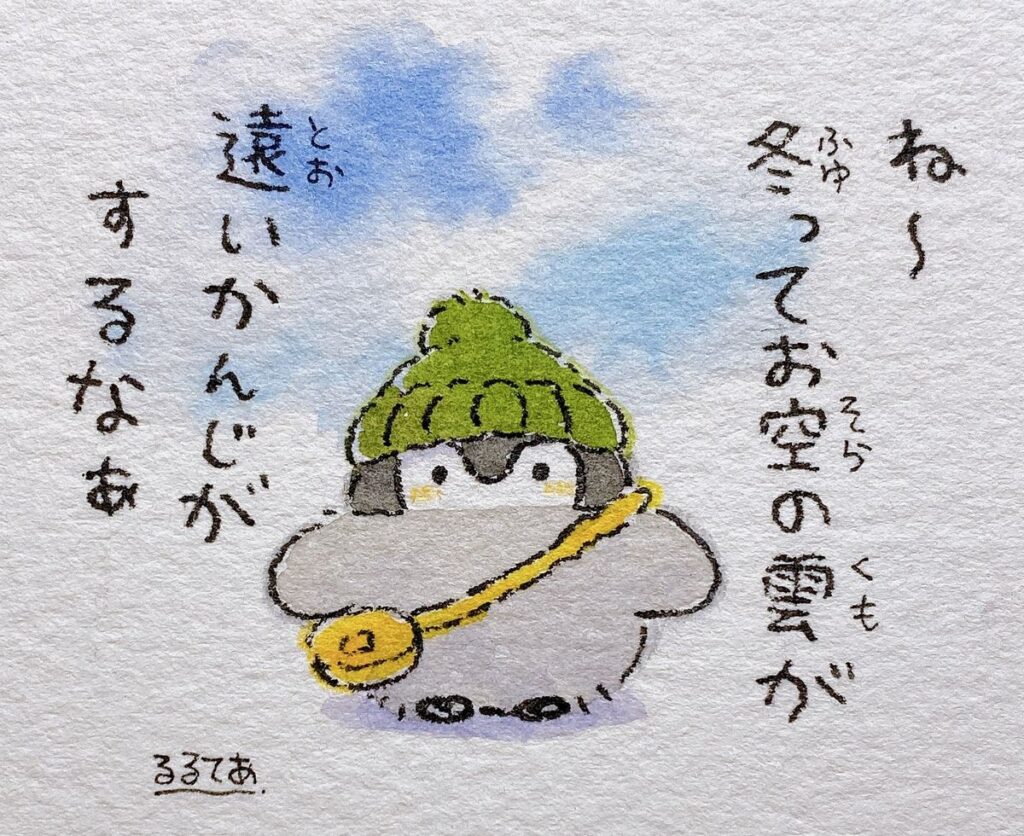 ね〜
冬って お空の雲が
ふゆ
そら
くも
遠いかんじが
とお
するなぁ
るるてあ.